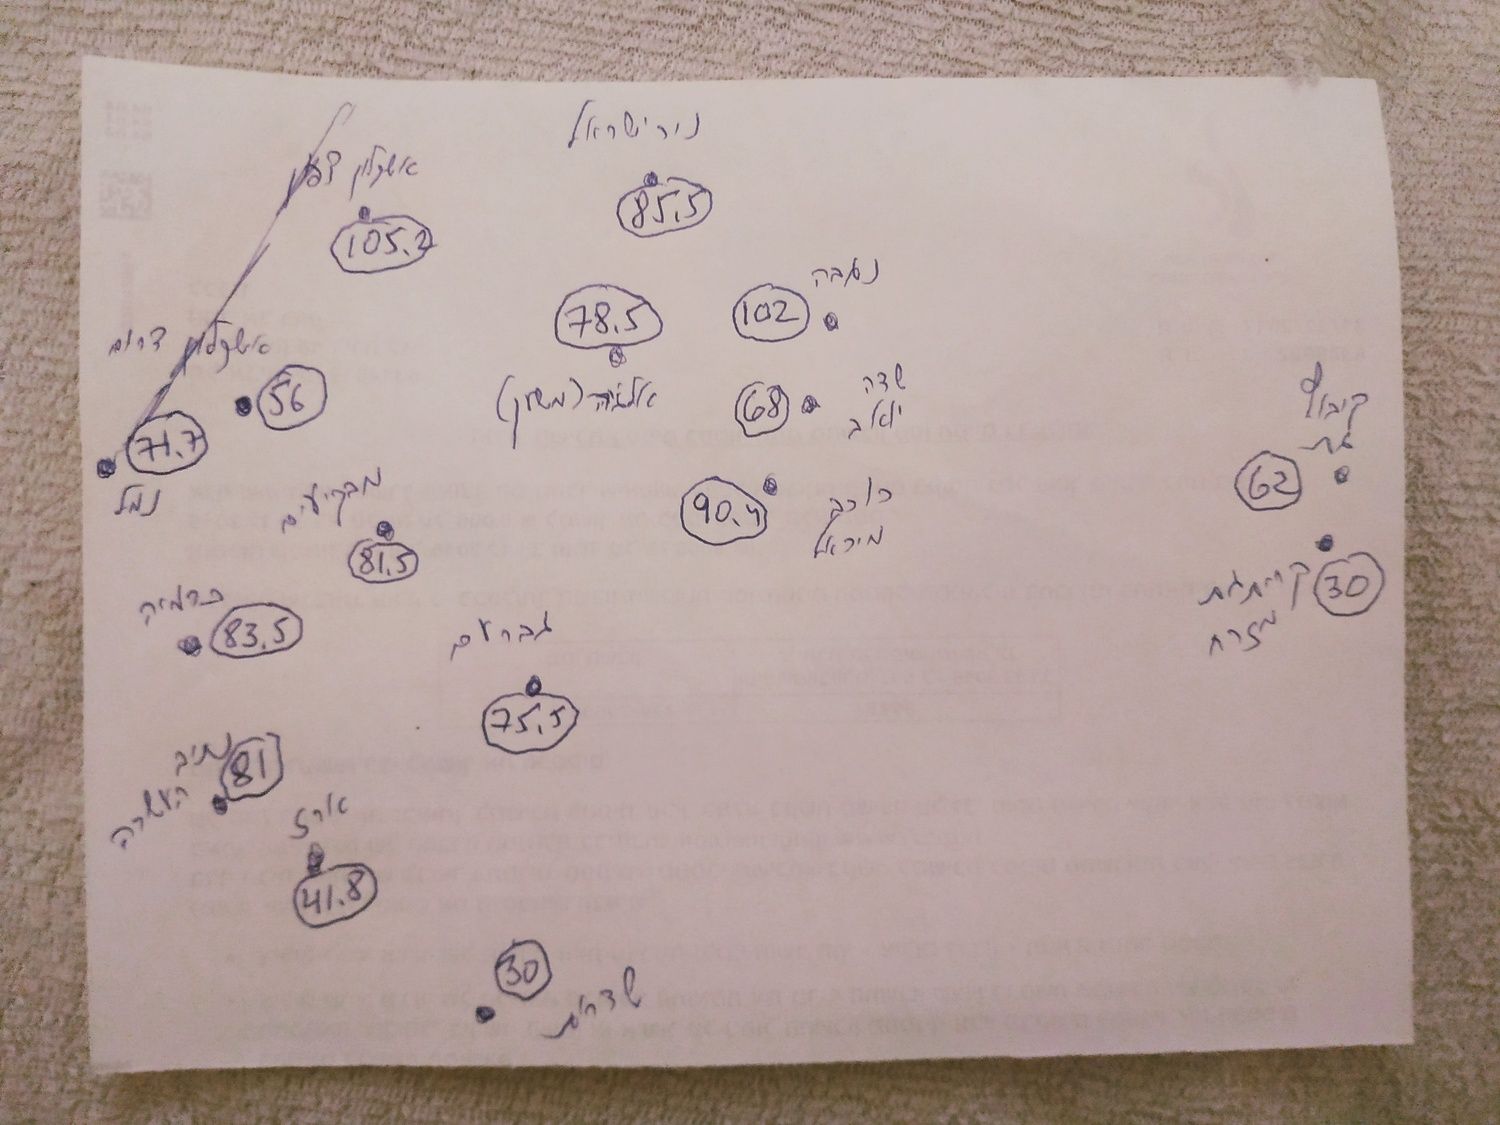 ניר ישראל
85.5
אשקלון צפון
105.2
נגבה
102
78.5
אלומה (משוון)
אשקלון דרום
56
שדה
יואב
68
קיבוץ
גת
62
71.7
נמל
מבקיעים
81.5
כוכב
מיכאל
90.4
קרית גת
מזרח
30
כרמיה
83.5
גברעם
75.5
נתיב
העשרה
81
ארז
41.8
30
שדרות